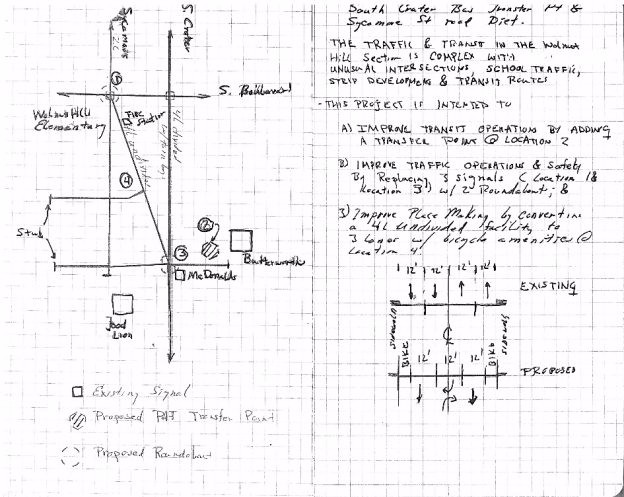 South Crater Bus Transfer Pt &
Sycamore St road Diet.
THE TRAFFIC & TRANSIT IN THE Walnut
Hill Section is COMPLEX WITH
UNUSUAL INTERSECTIONS, SCHOOL TRAFFIC,
STRIP DEVELOPMENT & TRANSIT ROUTES
- THIS PROJECT IS INTENDED TO
A) IMPROVE TRANSIT OPERATION BY ADDING
A TRANSFER POINT @ LOCATION 2
B) IMPROVE TRAFFIC OPERATIONS & Safety
By Replacing 3 signals ( Location 1&
Location 3) w/ 2 Roundabout; &
3) Improve Place Making by convertin
a 4L Undivided facility to
3 Lanes w/ bicycle amenities @
Location 4.
12' 12' 12' 12'
EXISTING
BIKE 12' 12' 12' BIKE
PROPOSED
S Crater
2L
1
S. Boulevard
Walnut Hill
Elementary
Fire
Station
4L undivided
4L divided
4
2
Stub
3
Butterworths
McDonalds
Food
Lion
Existing Signal
Proposed PAT Transfer Point
Proposed Roundabout